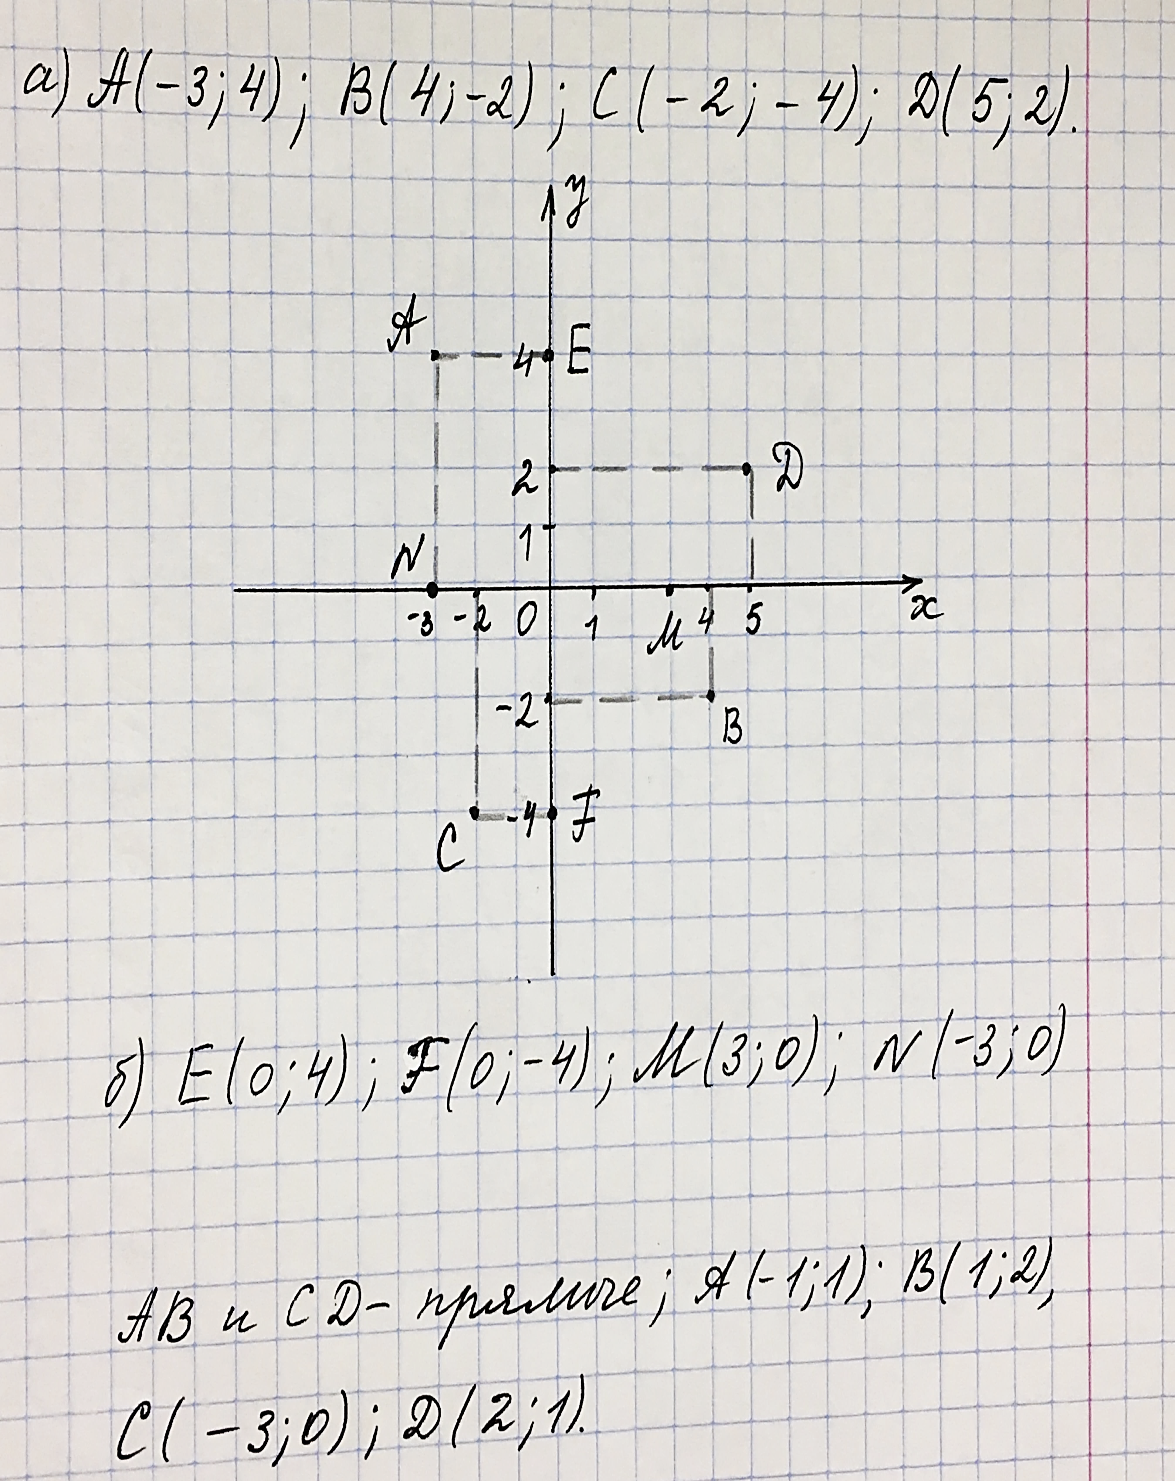 а) A(-3;4); B(4;-2); C(-2;-4); D(5;2).
y
A
4 E
2 D
1
N
-3 -2 0 1 M 4 5 x
-2 B
C -4 F
б) E(0;4); F(0;-4); M(3;0); N(-3;0)
AB и CD- прямые; A(-1;1); B(1;2),
C(-3;0); D(2;1).